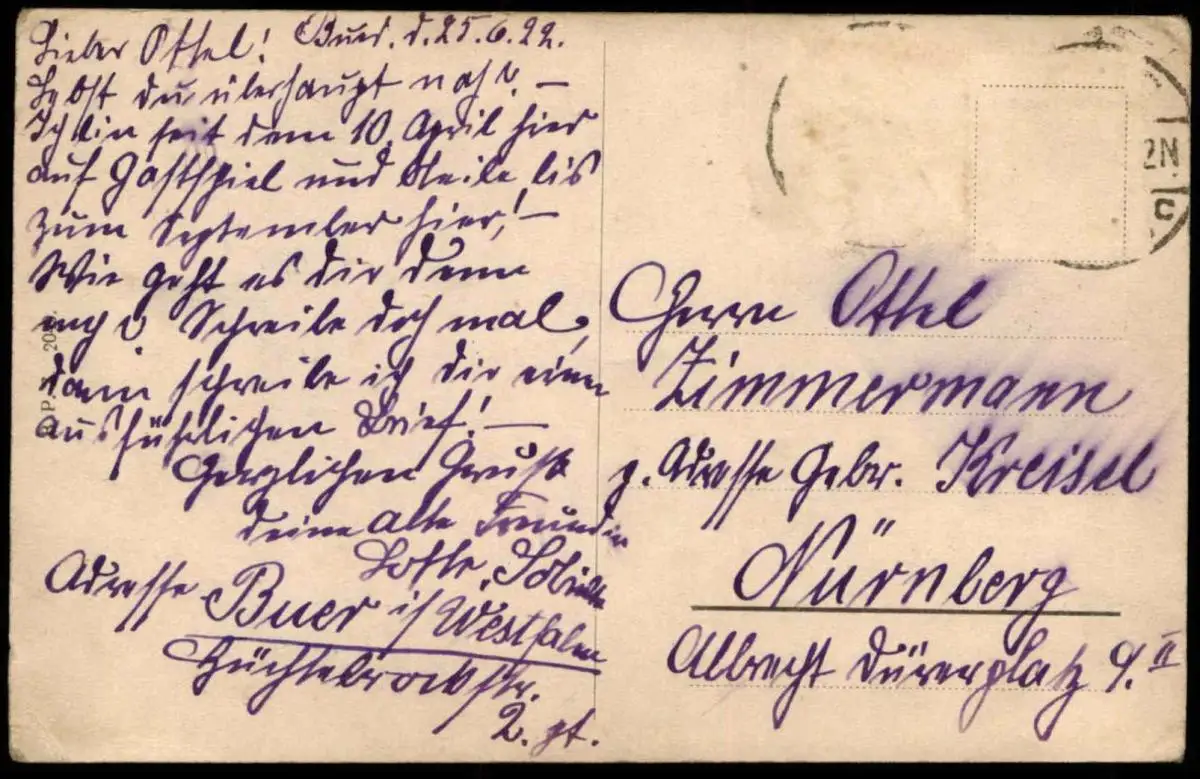 Lieber Ottel! Buer, d. 25.6.22.
Lebst du überhaupt noch? —
Ich bin seit dem 10. April hier
auf Gastspiel und bleibe bis
zum September hier! —
Wie geht es dir denn
noch? Schreibe doch mal,
dann schreibe ich dir einen
ausführlichen Brief! —
Herzlichen Gruß
deine alte Freundin
Lotte
Adresse Buer i/Westfalen
Hüchtebrockstr.
2. pt.
Herrn Ottel
Zimmermann
z. Adresse Gebr. Kreisel
Nürnberg
Albrecht Dürerplatz 9. II
2N
C